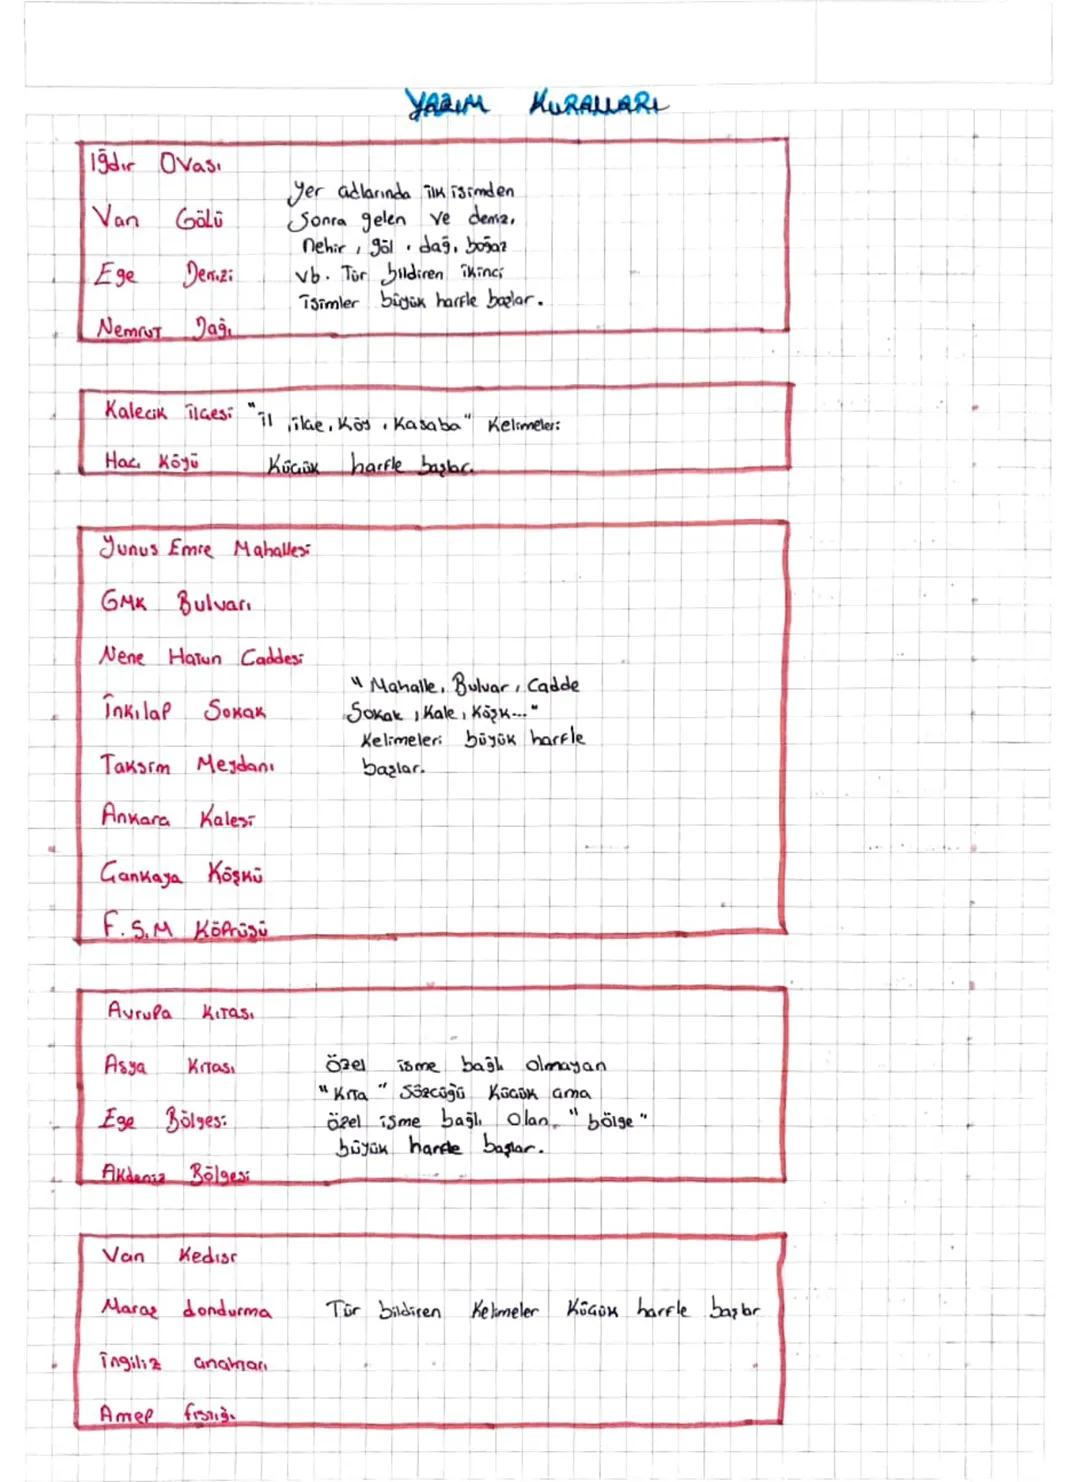 YAZIM KURALLARI
Iğdır Ovası
Yer adlarında ilk isimden
Van Gölü
sonra gelen ve deniz,
nehir, göl, dağ, boğaz
Ege Denizi
vb. Tür bildiren ikinci
isimler büyük harfle başlar.
Nemrut Dağı
Kalecik ilçesi "il, ilçe, Köy, Kasaba" Kelimeleri
Hacı Köyü Küçük harfle başlar.
Yunus Emre Mahallesi
GMK Bulvarı
Nene Hatun Caddesi
"Mahalle, Bulvar, Cadde
İnkılap Sokak
Sokak, Kale, Köşk..."
Kelimeleri büyük harfle
Taksim Meydanı
başlar.
Ankara Kalesi
Çankaya Köşkü
F.S.M Köprüsü
Avrupa Kıtası
Asya Kıtası
Özel isme bağlı olmayan
"Kıta" Sözcüğü Küçük ama
Ege Bölgesi
özel isme bağlı olan "bölge"
büyük harfle başlar.
Akdeniz Bölgesi
Van Kedisi
Maraş dondurma Tür bildiren Kelimeler Küçük harfle başlar
İngiliz anahtarı
Amep fıstığı